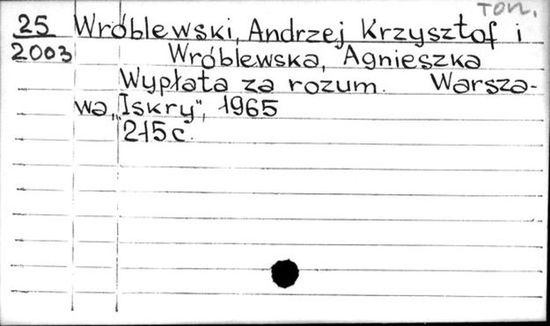 топ.
25 Wróblewski, Andrzej Krzysztof i
2003 Wróblewska, Agnieszka
Wypłata za rozum. Warsza-
wa, „Iskry", 1965
215 c.